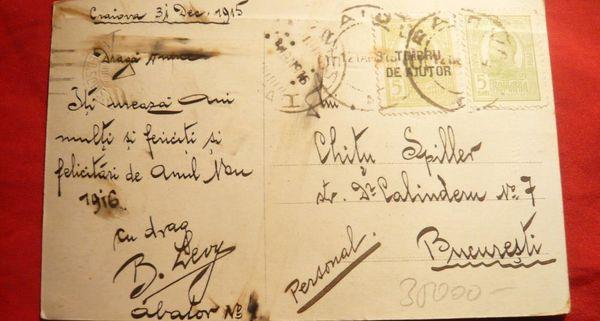 Craiova 31 Dec. 1915
Dragă
Iți urează Ani
mulți și fericiți și
felicitări de Anul Nou
1916.
cu drag
B. Levy
abator No
TIMBRU
DE AJUTOR
5
5
Chițu Spiller
str. Dr Calinderu No 7
București
Personal.